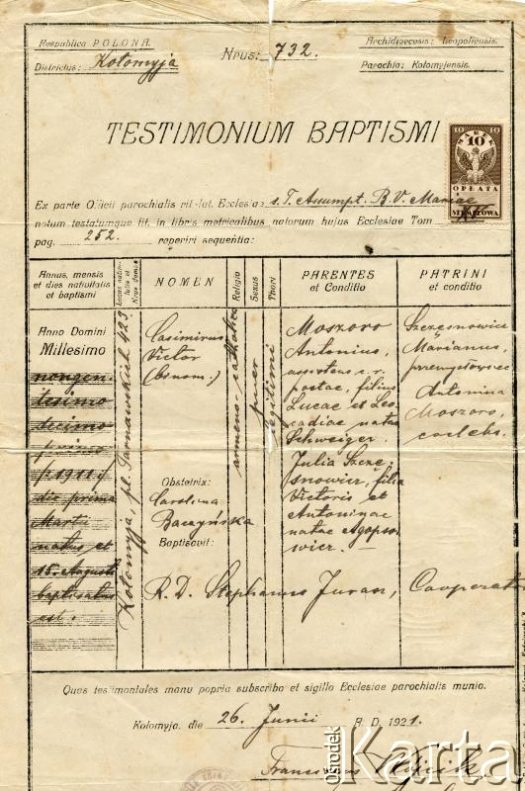 Respublica POLONA.
Districtus: Kołomyja
Nrus: 732.
Archidioecesis: Leopoliensis.
Parochia: Kolomyjensis.
TESTIMONIUM BAPTISMI
10 10
10
OPŁATA
STEMPLOWA
Ex parte Officii parochialis rit. lat. Ecclesiae s. T. Assumpt. B. V. Mariae
notum testatumque fit, in libris metricalibus natorum hujus Ecclesiae Tom
pag. 252. reperiri sequentia:
Annus, mensis
et dies nativitatis
et baptismi
NOMEN
Religio
Sexus
Thori
PARENTES
et Conditio
PATRINI
et conditio
Anno Domini
Millesimo
nongen
tesimo
decimo
primo
/: 1911 :/
die prima
Martii
natus et
15. Augusti
baptisatus
est.
Kołomyja, pl. Tarnawskich 423
Casimirus
Victor
(binom.)
Obstetrix:
Carolina
Baczyńska
Baptisavit:
R. D. Stephanus Juran, Cooperator
armeno-catholica
puer
legitimi
Moszoro
Antonius,
filius
Lucae et Leo
cadiae natae
Schweiger.
Julia Szczę
snowicz, filia
Victoris et
Antoninae
natae Agopso
wicz. —
Szczęsnowicz
Marianus,
przemysłowiec
Antonina
Moszoro,
coelebs.
Quas testimoniales manu propria subscribo et sigillo Ecclesiae parochialis munio.
Kolomyja, die 26. Junii A. D. 1921.
Franciscus
Ośrodek
Karta